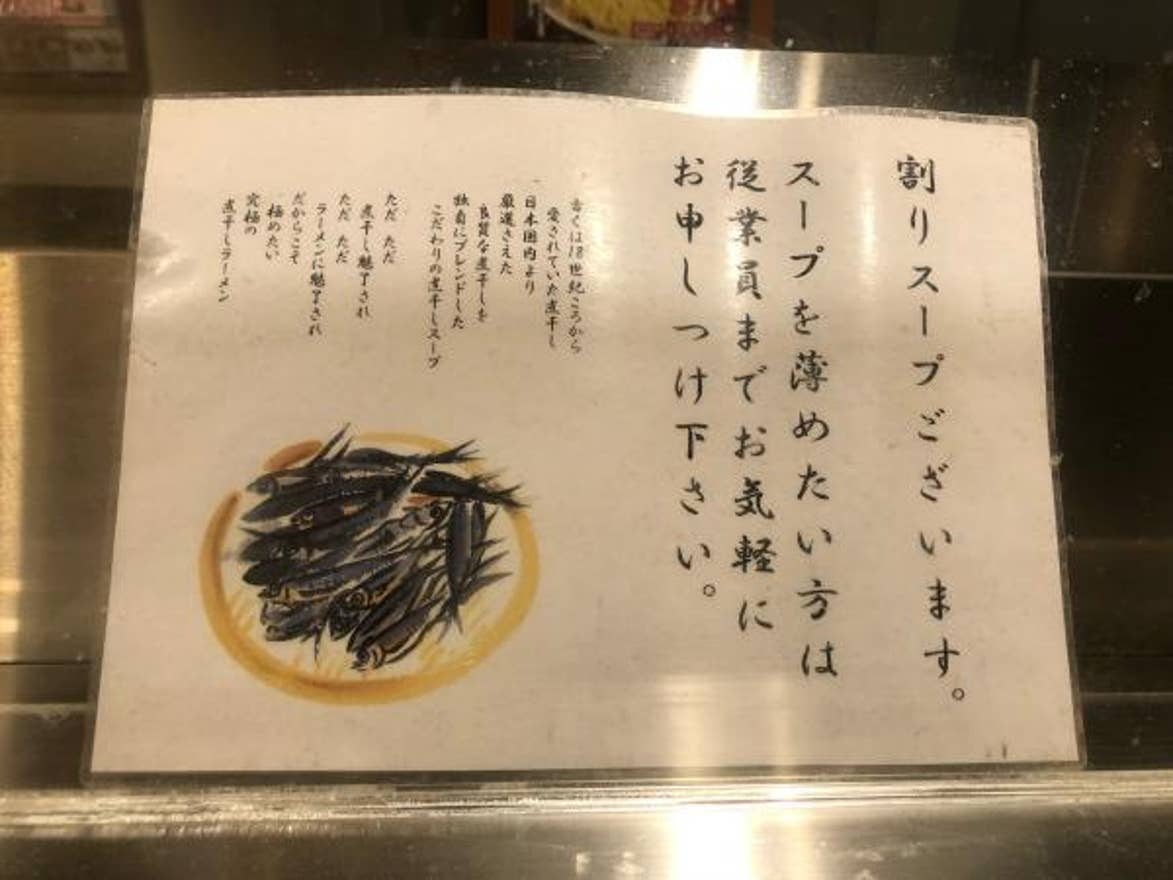 割りスープございます。
スープを薄めたい方は
従業員までお気軽に
お申しつけ下さい。
古くは18世紀ころから
愛されていた煮干し
日本国内より
厳選さえた
良質な煮干しを
独自にブレンドした
こだわりの煮干しスープ
ただ ただ
煮干し魅了され
ただ ただ
ラーメンに魅了され
だからこそ
極めたい
究極の
煮干しラーメン